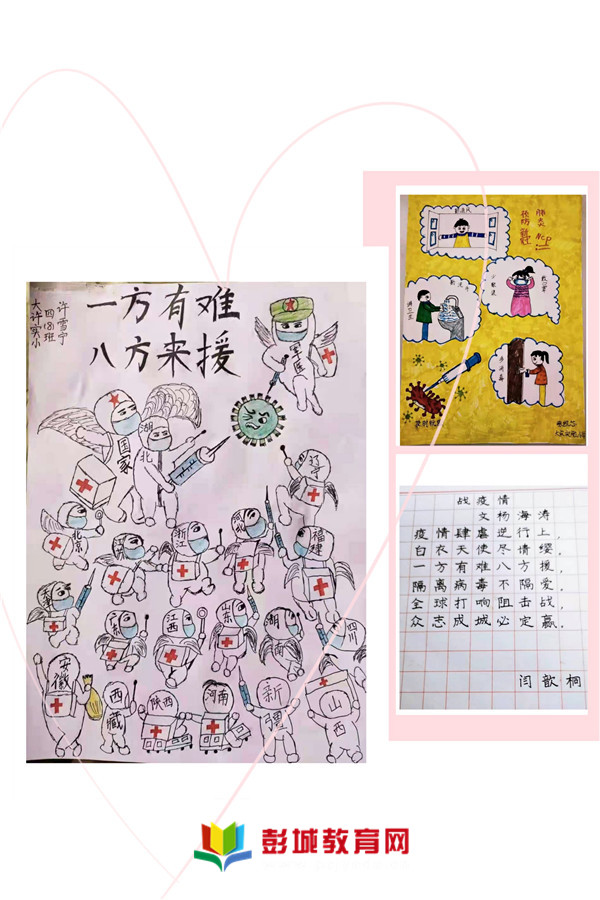 一方有难
八方来援
许雪宁
四(8)班
大许实小
军医
国家
湖北
辽宁
北京
浙江
福建
江西
山东
湖南
四川
安徽
西藏
陕西
河南
新疆
山西
肺炎
预防
NCP
勤洗手
讲卫生
战疫情
文杨海涛
疫情肆虐逆行上，
白衣天使尽请缨。
一方有难八方援，
隔离病毒不隔爱。
全球打响阻击战，
众志成城必定赢。
闫歆桐
彭城教育网